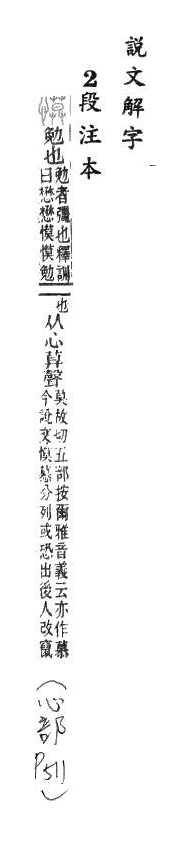 說文解字
2段注本
慔 勉也 勉者彊也釋訓曰懋懋慔慔勉也 从心莫聲 莫故切五部按爾雅音義云亦作慕今說文慔慕分列或恐出後人改竄
(心部 P511)